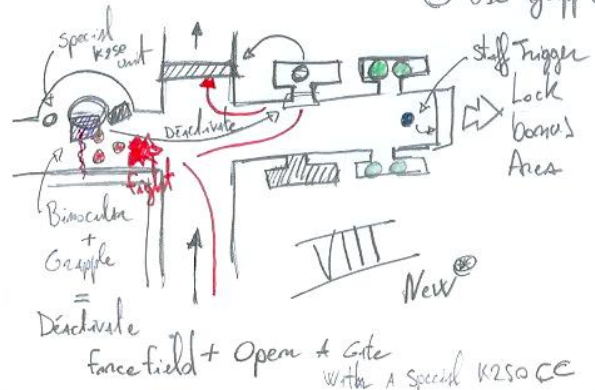 ② Use grapp
Special
K250
unit
Staff Trigger
Lock
bonus
Area
Déactivate
fight
Binocular
+
Grapple
=
Déactivate
forcefield + Open A Gate
With A Special K250 CC
VIII
New